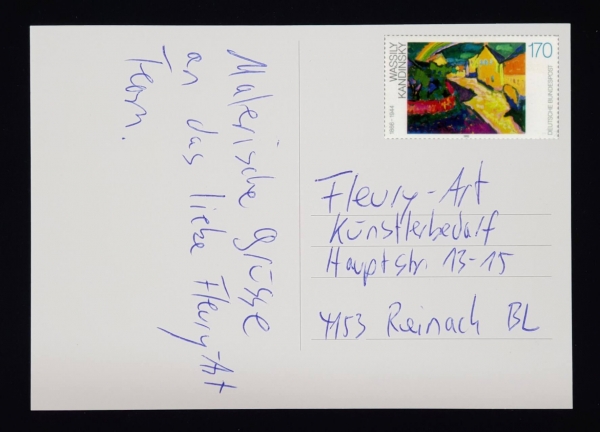 Malerische Grüsse
an das liebe Fleury-Art
Team.
WASSILY
KANDINSKY
170
1866-1944
DEUTSCHE BUNDESPOST
Fleury-Art
Künstlerbedarf
Hauptstr. 13-15
4153 Reinach BL